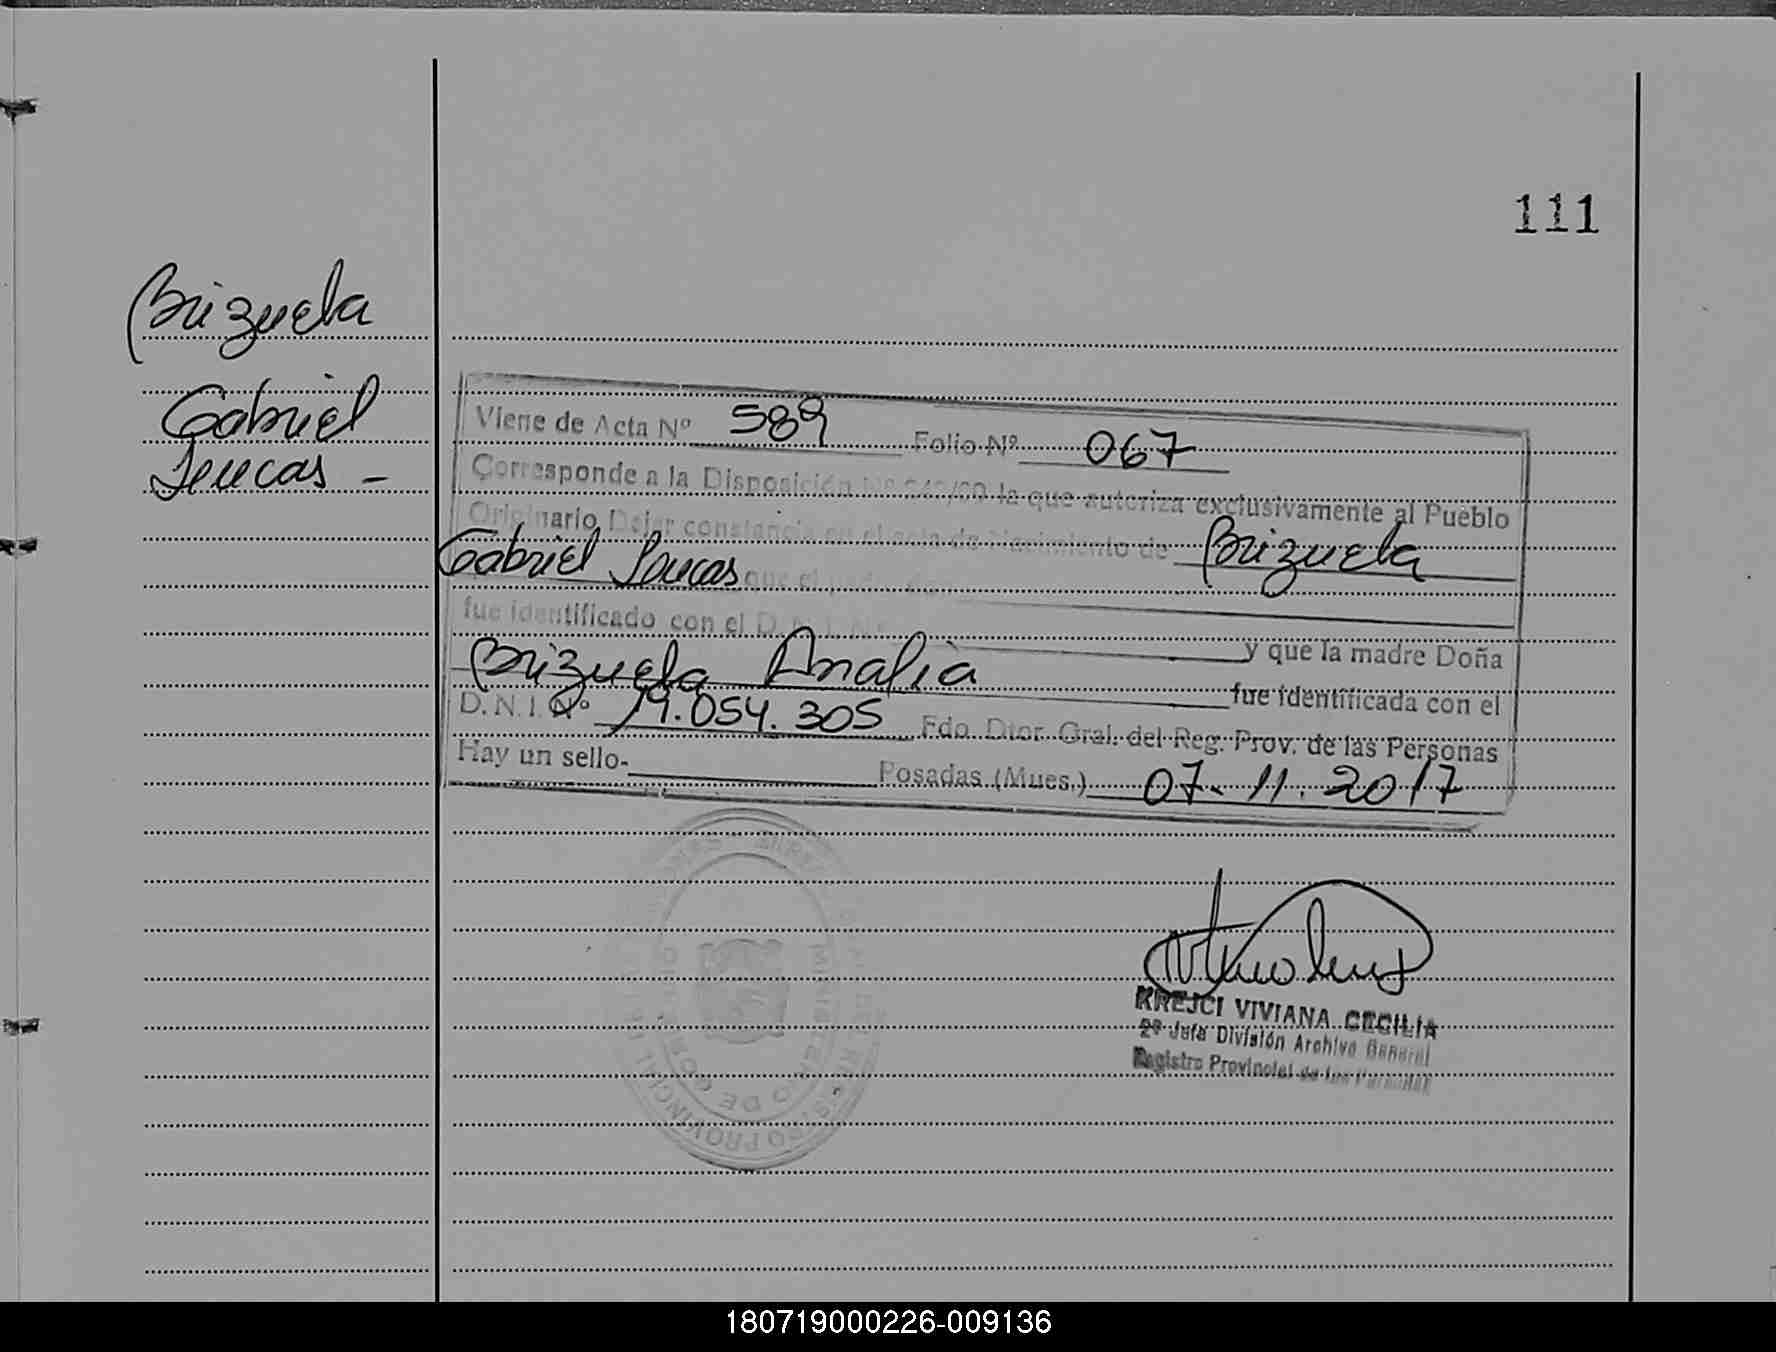 111
Brizuela
Gabriel
Lucas -
Viene de Acta Nº 589 Folio Nº 067
Corresponde a la Disposición Nº la que autoriza exclusivamente al Pueblo
Originario Dejar constancia en el acta de Nacimiento de Brizuela
Gabriel Lucas que el
fue identificado con el D.N.I. Nº y que la madre Doña
Brizuela Analia fue identificada con el
D.N.I. Nº 19.054.305 Fdo. Dtor. Gral. del Reg. Prov. de las Personas
Hay un sello- Posadas (Mnes.) 07-11.2017
KREJCI VIVIANA CECILIA
2º Jefa División Archivo General
Registro Provincial de las Personas
MINISTERIO DE GOBIERNO
REGISTRO PROVINCIAL
180719000226-009136